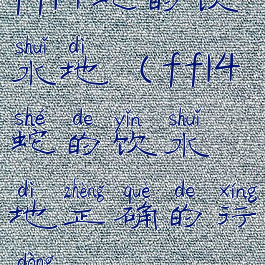 shuǐ dì
水地（ff14
shé de yǐn shuǐ
蛇的饮水
dì zhèng què de xíng
地正确的行